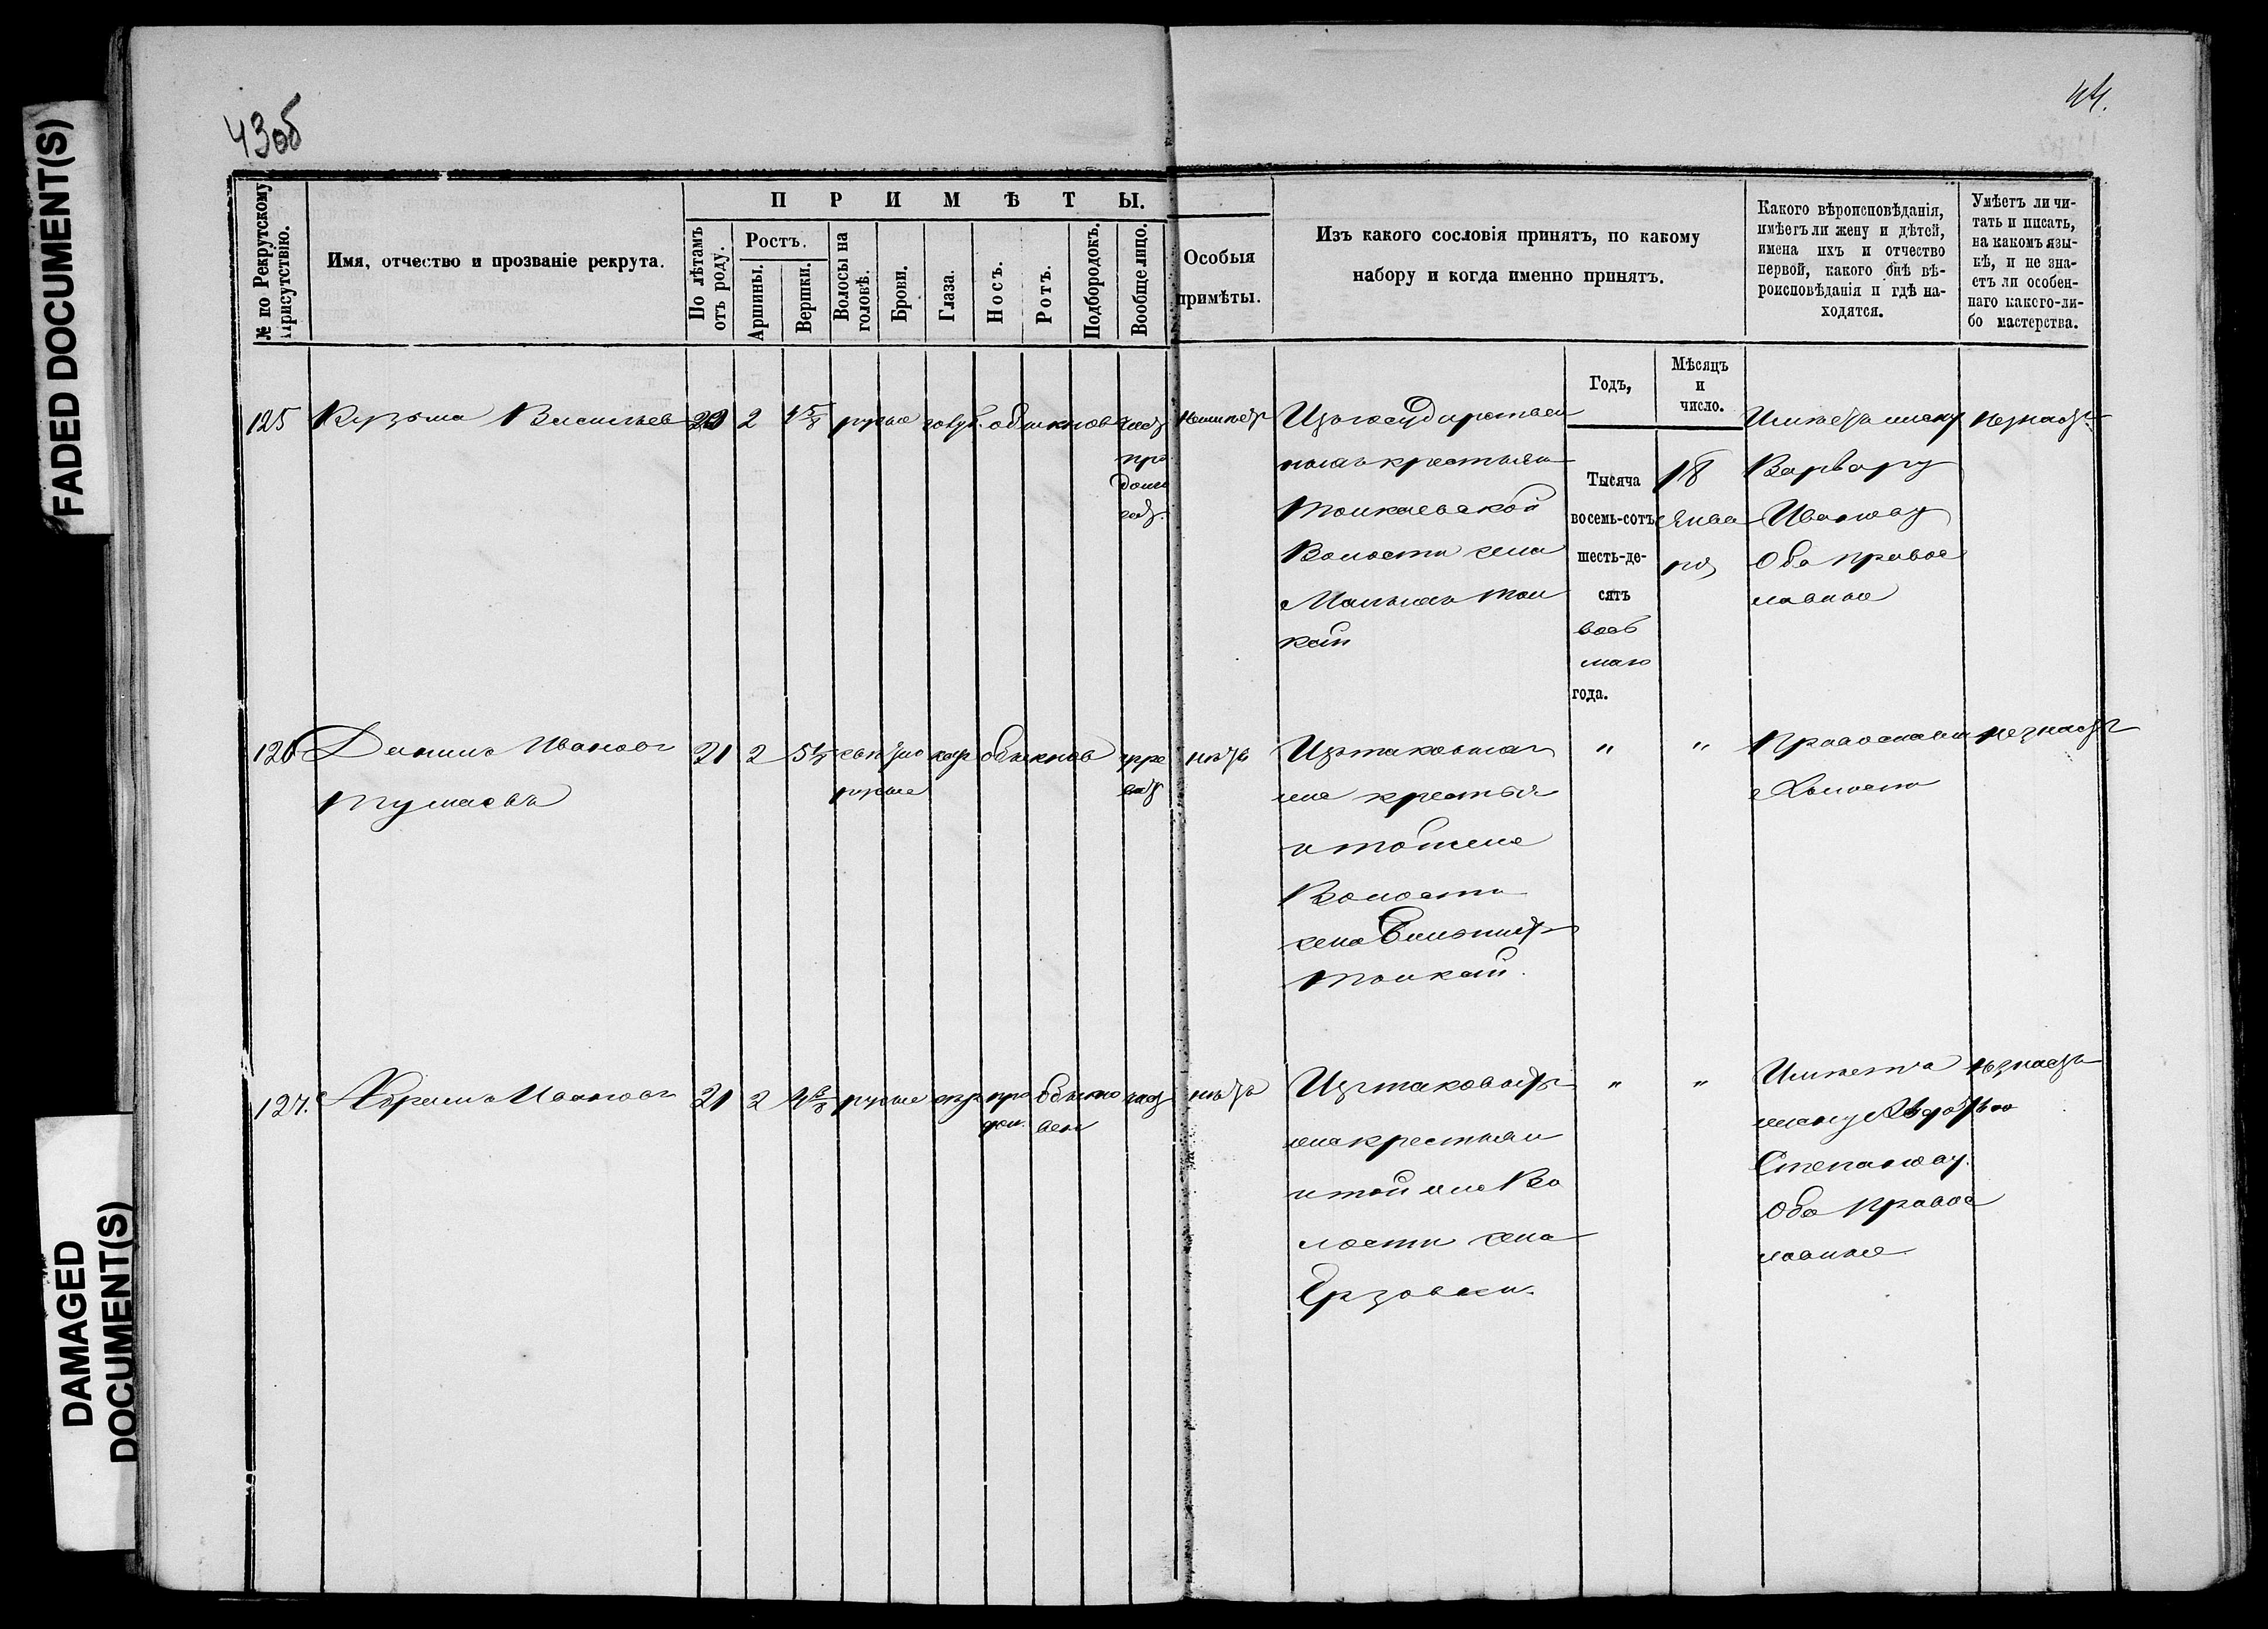 43об
44.
FADED DOCUMENT(S)
DAMAGED
DOCUMENT(S)
№ по Рекрутскому
Присутствію.
Имя, отчество и прозваніе рекрута.
ПРИМѢТЫ.
По лѣтамъ
отъ роду.
Ростъ.
Аршины.
Вершки.
Волосы на
головѣ.
Брови.
Глаза.
Носъ.
Ротъ.
Подбородокъ.
Вообще лицо.
Особыя
примѣты.
Изъ какого сословія принятъ, по какому
набору и когда именно принятъ.
Какого вѣроисповѣданія,
имѣетъ ли жену и дѣтей,
имена ихъ и отчество
первой, какого онѣ вѣ-
роисповѣданія и гдѣ на-
ходятся.
Умѣетъ ли чи-
тать и писать,
на какомъ язы-
кѣ, и не зна-
етъ ли особен-
наго какого-ли-
бо мастерства.
Годъ,
Мѣсяцъ
и
число.
125 Кузьма Васильев 2 4 5/8 русые голуб. обыкнов чист
продолговат.
Изъ государствен
ныхъ крестьян
Толкаевской
Волости села
Малыхъ Тол
кай
Тысяча
восемь-сотъ
шесть-де-
сять
вось
маго
года.
18
Янва
ря
Имѣетъ жену
Варвару
Иванову
Оба правос
лавные
незнаетъ
126 Данило Иванов 21 2 свѣтло кар обыкнов
русые
нѣтъ
Изъ таковыхъ
же крестья
и тойже
Волости
села Большихъ
Толкай.
" "
Православн
Холостъ
незнаетъ
127. Абрамъ Ивановъ 21 2 4 6/8 русые сер про обыкно чист
дол. вен
нѣтъ
Изъ таковыхъ
же крестьян
и той же Во
лости села
Ерзовки.
" "
Имѣетъ
жену Авдотью
Степанову.
Оба правос
лавные
незнаетъ